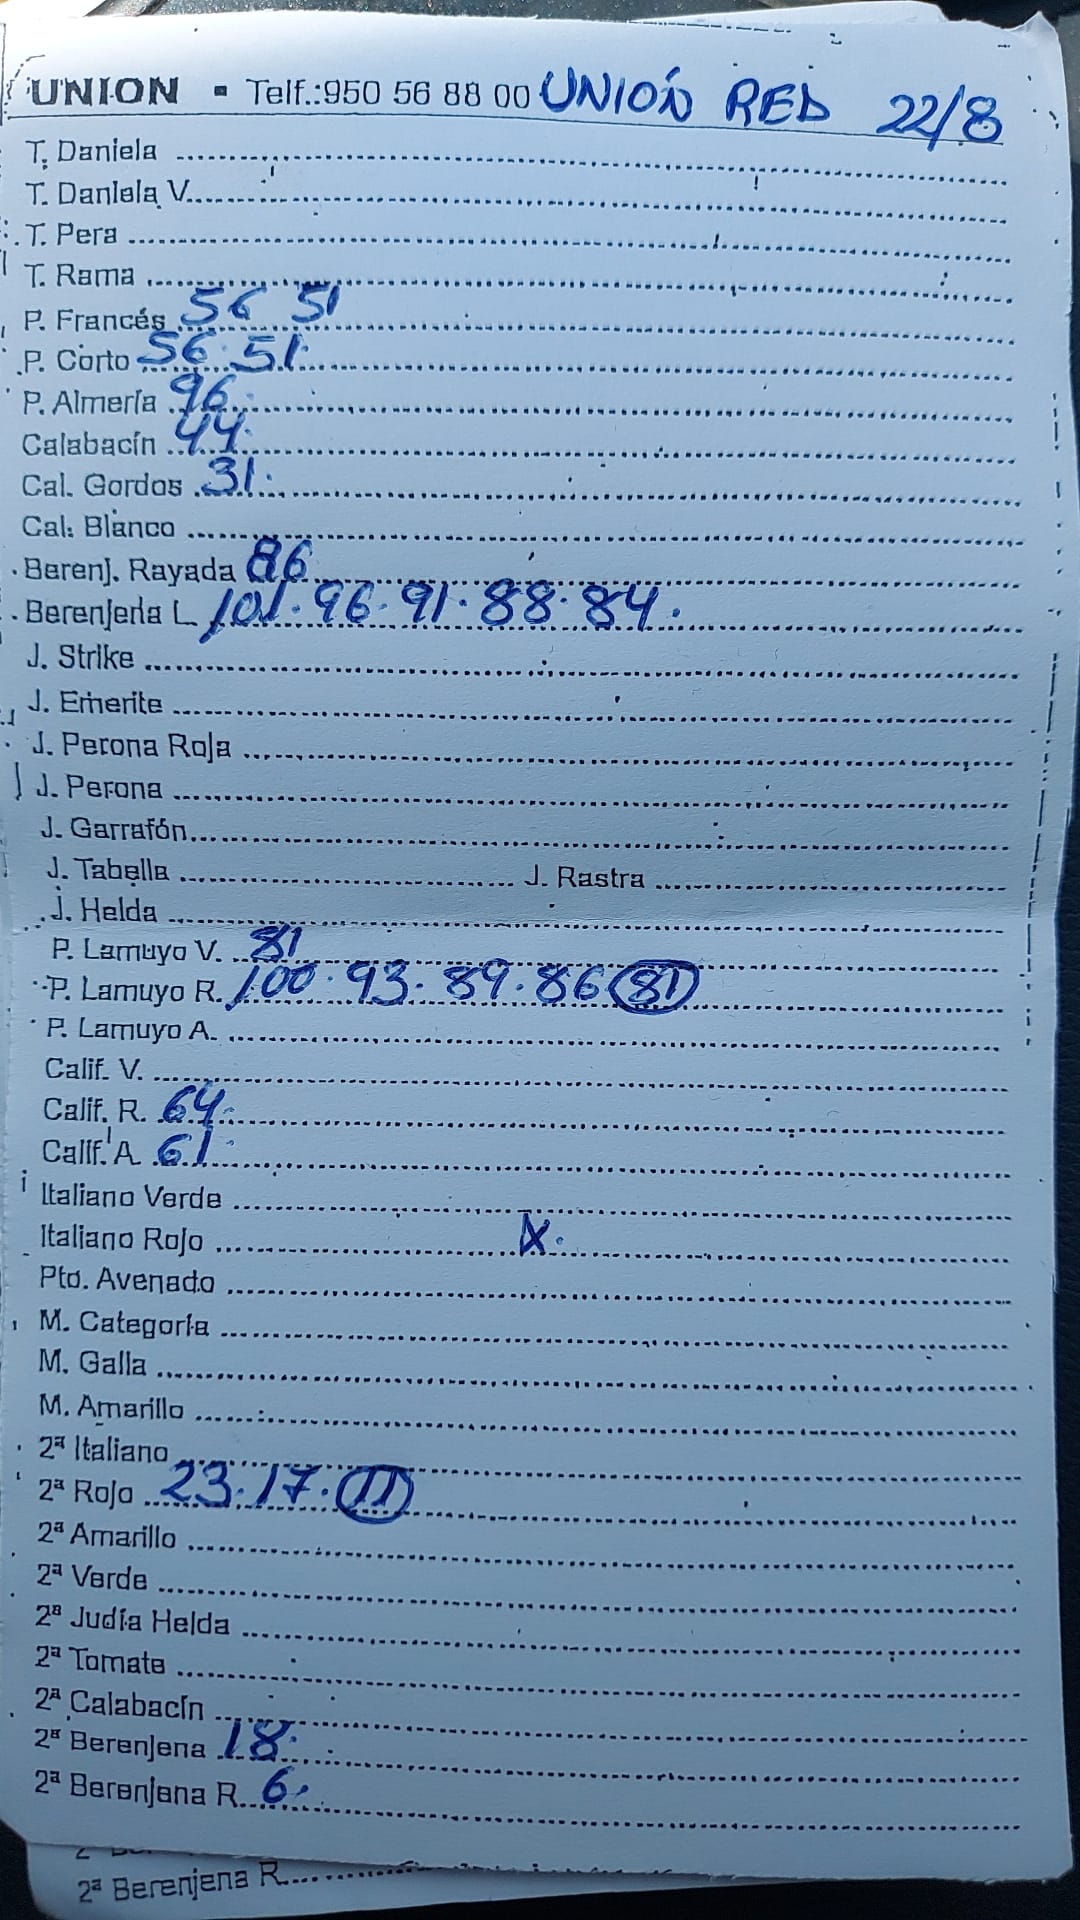 UNION - Telf.:950 56 88 00 UNIÓN RED 22/8
T. Daniela
T. Daniela V.
T. Pera
T. Rama
P. Francés 56 51
P. Corto 56. 51.
P. Almería 96.
Calabacín 44.
Cal. Gordos 31.
Cal. Blanco
Berenj. Rayada 86
Berenjena L. 101. 96. 91. 88. 84.
J. Strike
J. Emerite
J. Perona Roja
J. Perona
J. Garrafón
J. Tabella J. Rastra
J. Helda
P. Lamuyo V. 81
P. Lamuyo R. 100. 93. 89. 86 81
P. Lamuyo A.
Calif. V.
Calif. R. 64.
Calif. A. 61.
Italiano Verde
Italiano Rojo X.
Pto. Avenado
M. Categoría
M. Galia
M. Amarillo
2ª Italiano
2ª Rojo 23. 17. 11
2ª Amarillo
2ª Verde
2ª Judía Helda
2ª Tomate
2ª Calabacín
2ª Berenjena 18.
2ª Berenjena R. 6.
2ª Berenjena R.